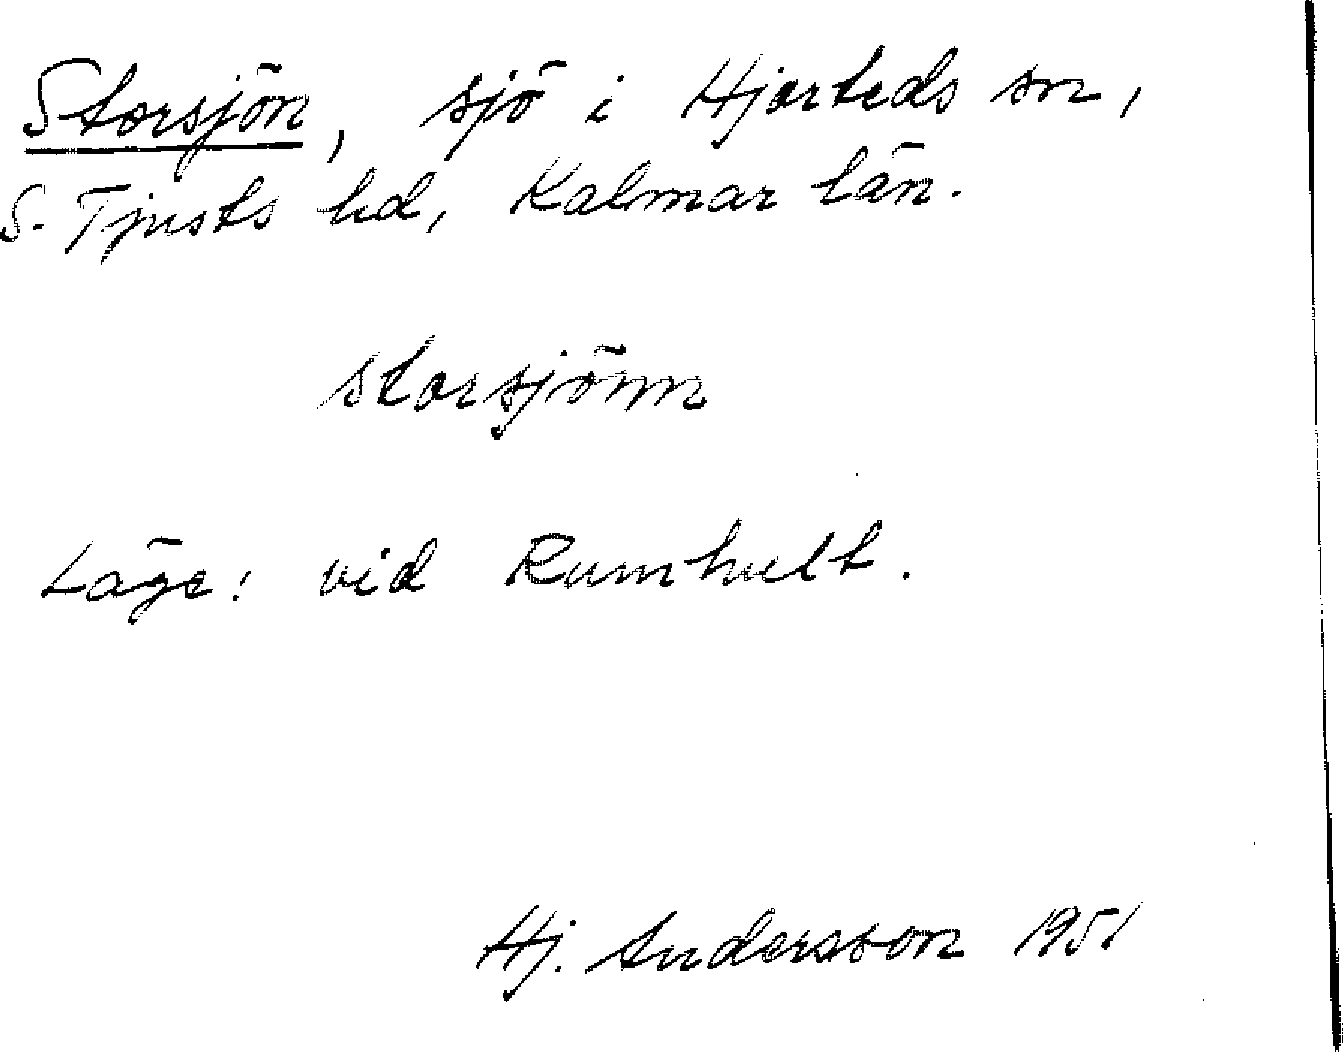 Storsjön, sjö i Hjorteds sn,
S. Tjusts hd, Kalmar län.
storsjönn
Läge: vid Rumhult.
Hj. Andersson 1951